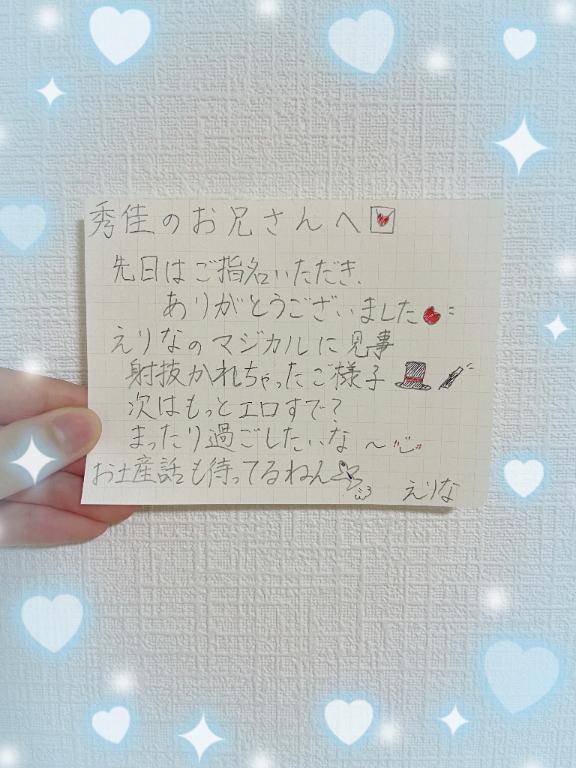 秀佳のお兄さんへ
先日はご指名いただき、
ありがとうございました
えりなのマジカルに見事
射抜かれちゃったご様子
次はもっとエロすで?
まったり過ごしたいな〜
お土産話も待ってるねん
えりな